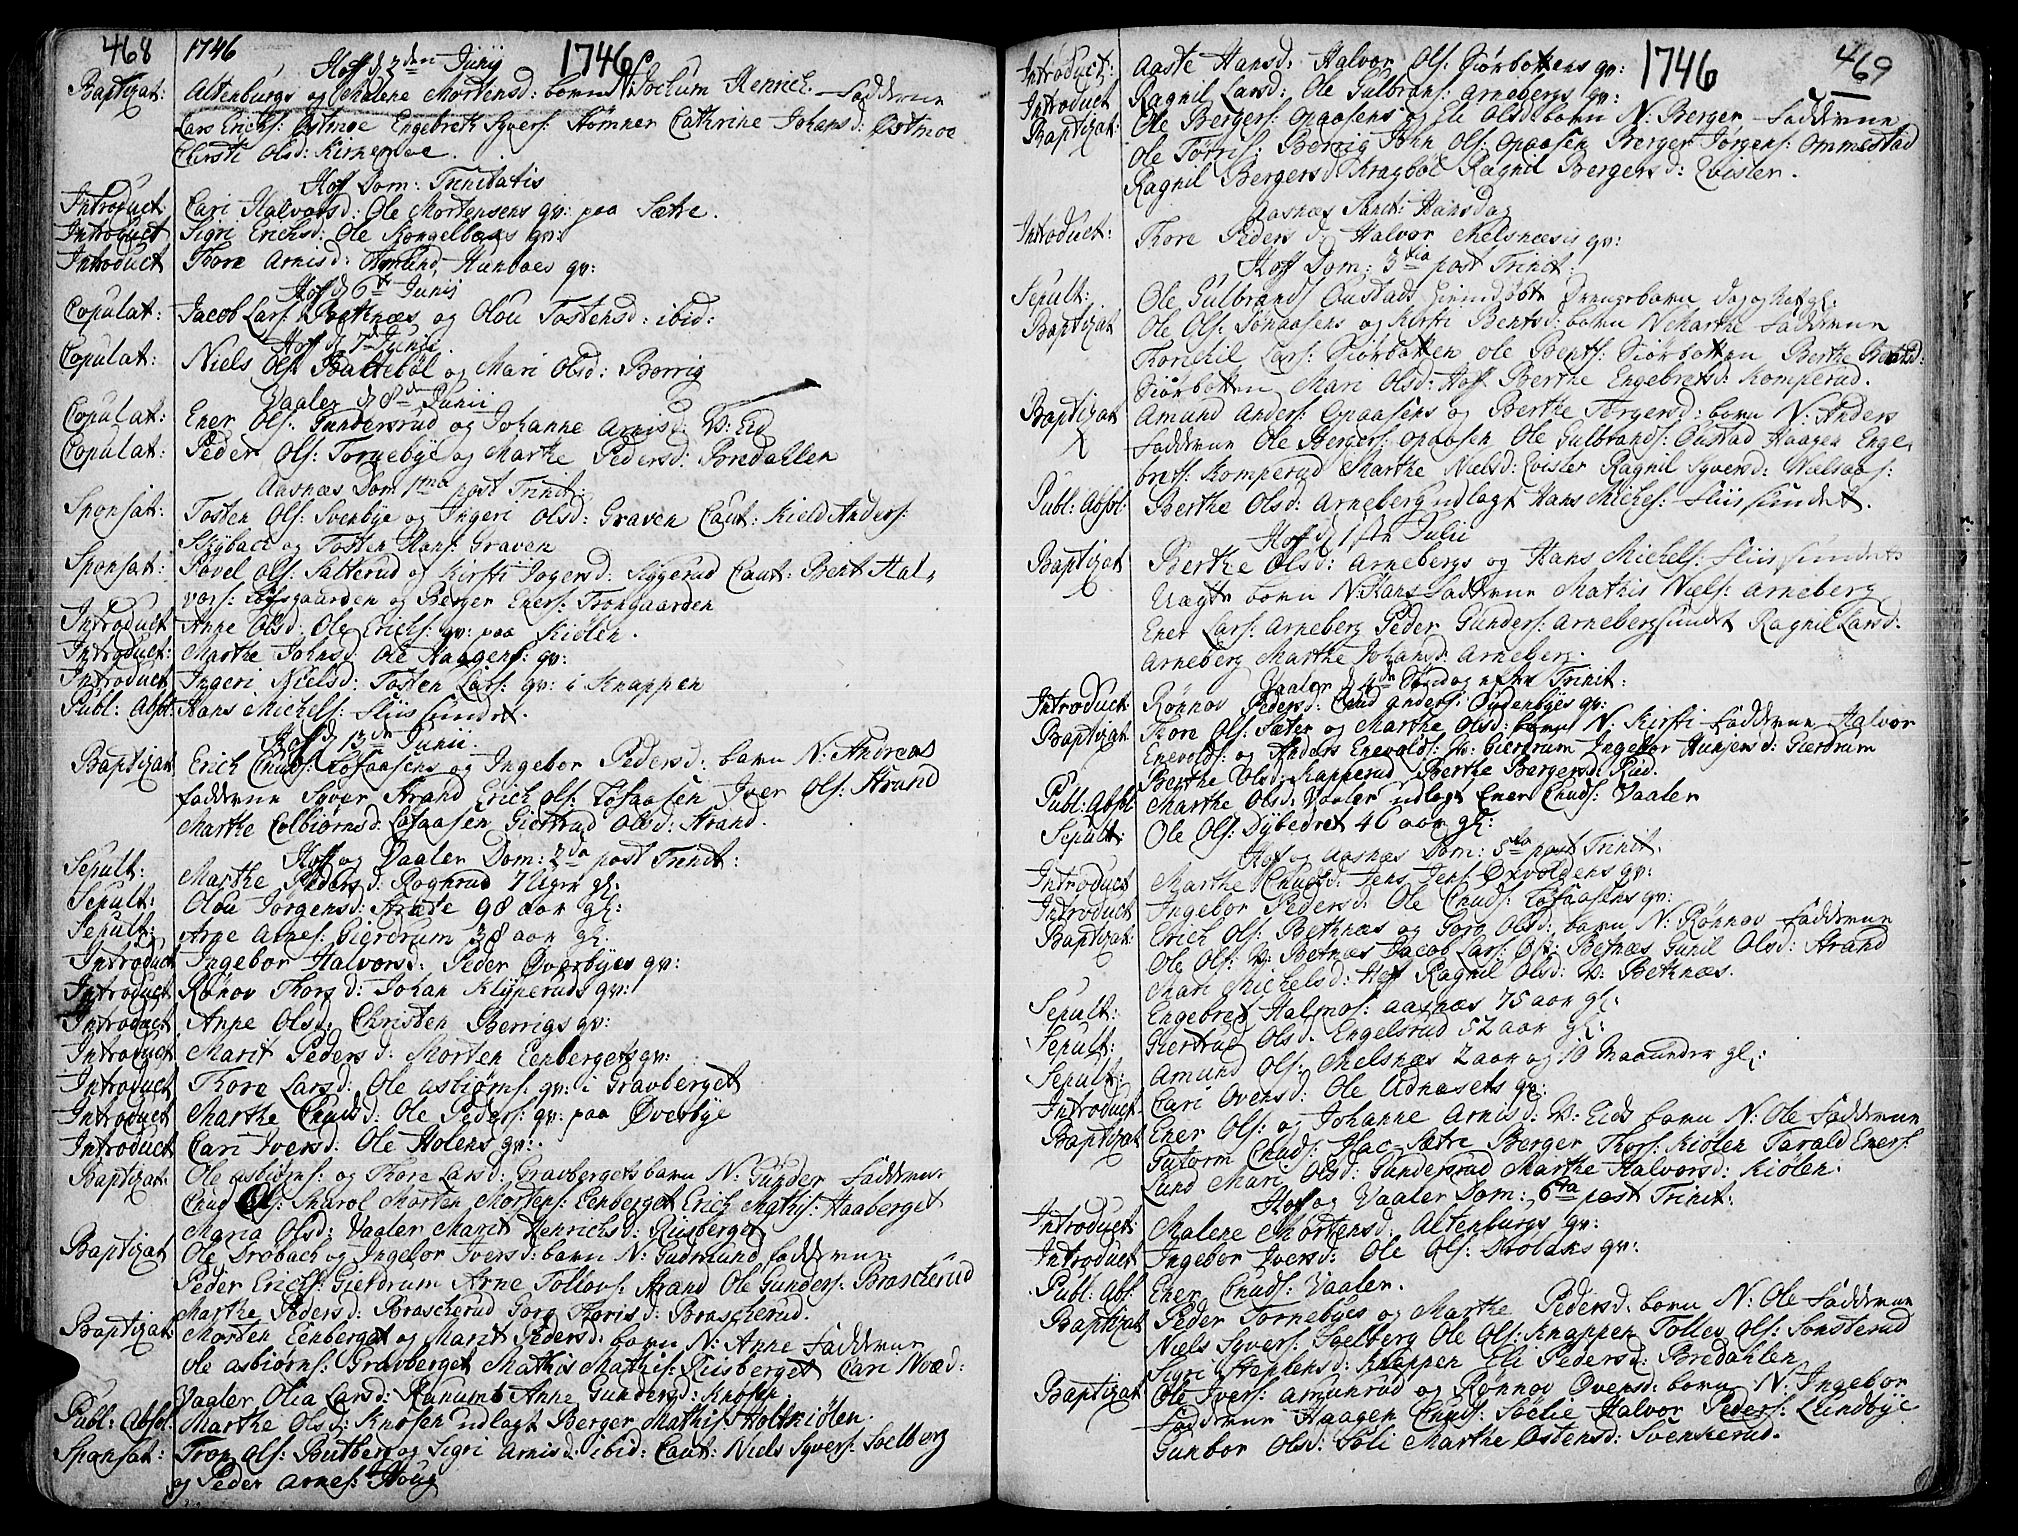 468 1746 1746
Hof d 2den Junij
Baptizat: Altenburgs og Malene Mortensd: barn N: Jochum Henrich Fadderne
Lars Erichs: Østmoe Engebreth Syvers: Hømner Cathrine Johansd: Østmoe
Chirsti Olsd: Kirnemoe.
Hof Dom: Trinitatis
Introduct Cari Halvorsd: Ole Mortensens qv: paa Sætre.
Introduct Sigri Erichsd: Ole Kongelbæks qv:
Introduct Thore Arnisd: Amund Hunboes qv:
Hof d 6te Junij
Copulat: Jacob Lars: Betknæs og Olou Tostensd: ibid:
Hof d 7de Junii.
Copulat: Niels Ols: Baltebøl og Mari Olsd: Berrig
Vaaler d 8den Junii
Copulat: Ener Ols: Gundersrud og Johanne Arnisd: V: Eid
Copulat: Peder Ols: Torgebye og Marthe Pedersd: Bredahlen
Aasnæs Dom 1ma post Trinit:
Sponsat: Tosten Ols: Svenbye og Ingeri Olsd: Graven Caut: Kield Anders:
Skybach og Tosten Hans: Graven
Sponsat: Povel Ols: Salterud og Kirsti Jogersd: Siggerud Caut: Bent Hal-
vors: Løfsgaarden og Berger Eners: Trongaarden
Introduct Anne Olsd: Ole Erichs: qv: paa Kiølen.
Introduct: Marthe Johnsd: Ole Haagens: qv:
Introduct Ingeri Nielsd: Tosten Lars: qv: i Knappen
Publ: Absol: Hans Michels: Fliissundet.
Hof d 13de Junii.
Baptizat Erich Cnuds: Løfaasens og Ingebor Pedersd: barn N: Andreas
fadderne Syver Strand Erich Ols: Løfaasen Iver Ols: Strand
Marthe Colbiørnsd: Løfaasen Giertrud Olsd: Strand.
Hof og Vaaler Dom: 2da post Trinit:
Sepult: Marthe Pedersd: Rognrud 7 Uger gl:
Sepult: Olou Jørgensd: Strade 98 aar gl:
Sepult: Arne Arnes: Gierdrum 38 aar gl.
Introduct Ingebor Halvorsd: Peder Øverbyes qv:
Introduct Rønov Thorsd: Johan Klyperuds qv:
Introduct Anne Olsd: Christen Berrigs qv:
Introduct Marit Pedersd: Morten Eenbergets qv:
Introduct Thore Larsd: Ole Asbiørns: qv: i Gravberget
Introduct Marthe Cnudsd: Ole Peders: qv: paa Øverbye
Introduct Cari Iversd: Ole Holens qv:.
Baptizat Ole Asbiørns: og Thore Larsd: Gravbergets barn N: Gunder Fadderne
Cnud Ols: Skarol Morten Mortens: Eenberget Erich Mathis: Haaberget
Maria Olsd: Vaaler Marit Henrichsd: Riisberget
Baptizat Ole Drobach og Ingebor Iversd: barn N: Gudmund fadderne
Peder Erichs: Gierdrum Arne Tollovs: Strand Ole Gunders: Brascherud
Marthe Pedersd: Brascherud Goro Thorisd: Brascherud.
Baptizat: Morten Eenberget og Marit Pedersd: barn N: Anne Fadderne
Ole Asbiørns: Gravberget Mathis Mathis: Riisberget Cari Nræd:
Vaaler Olia Larsd: Ranumb Anne Gundersd: Knosen.
Publ: Absol: Marthe Olsd: Knosen udlagt Berger Mathis: Holtkiølen.
Sponsat: Tron Ols: Butberg og Sigri Arnisd: ibid: Caut: Niels Syvers: Soelberg
og Peder Arnes: Houg
1746 469
Introduct: Aaste Hansd: Halvor Ols: Siørbottens qv:
Introduct Ragnil Larsd: Ole Gulbrans: Arnebergs qv:
Baptizat: Ole Bergers: Opaasens og Eli Olsd: barn N: Berger Fadderne
Ole Torris: Berrig John Ols: Opaasen Berger Jørgens: Ommestad
Ragnil Bergersd: Kragbøl Ragnil Bergersd: Qvislen.
Aasnæs Sanct: Hansdag
Introduct: Thore Pedersd: Halvor Melsnæsis qv:
Hof Dom: 3tia post Trinit:
Sepult: Ole Gulbrands: Oustads hiemdøbt Drengebarn dag og Nat gl:
Baptizat Ole Ols: Opaasens og Kirsti Bentsd: barn N: Marthe Fadderne
Thorchil Lars: Siørbotten Ole Bents: Siørbotten Berthe Bentsd:
Siørbotten Mari Olsd: Hof Berthe Engebretsd: Komperud.
Baptizat Amund Anders: Opaasens og Berthe Torgersd: barn N: Anders
Fadderne Ole Bergers: Opaasen Ole Gulbrands: Oustad Haagen Enge-
brets: Komperud Marthe Nielsd: Qvislen Ragnil Syversd: Nielsaas:
Publ: Absol: Berthe Olsd: Arneberg udlagt Hans Michels: Fliissundet.
Hof d 1ste Julii
Baptizat Berthe Olsd: Arnebergs og Hans Michels: Fliissundets
Uægte barn N: Hans Fadderne Mathis Niels: Arneberg
Ener Lars: Arneberg Peder Gunders: Arnebergsundet Ragnil Larsd:
Arneberg Marthe Johansd: Arneberg.
Vaaler d 4de Søndag efter Trinit:
Introduct: Rønnov Pedersd: Cnud Anders: Oydenbyes qv:
Baptizat Thore Ols: Sæter og Marthe Olsd: barn N: Kirsti Fadderne Halvor
Enevolds: og Anders Enevolds: V: Gierdrum Ingebor Hansensd: Gierdrum
Berthe Olsd: Kapperud Berthe Bergersd: Riid.
Publ: Absol Marthe Olsd: Vaaler udlagt Ener Cnuds: Vaaler
Sepult: Ole Ols: Dybedret 46 aar gl:
Hof og Aasnæs Dom: 5ta post Trinit.
Introduct Marthe Cnudsd: Jens Jens: Oxvoldens qv:
Introduct Ingebor Pedersd: Ole Cnuds: Løfaasens qv:
Baptizat: Erich Ols: Betknæs og Goro Olsd: barn N: Rønnov Fadderne
Ole Ols: V: Betnæs Jacob Lars: Øst: Betnæs Gunil Olsd: Strand
Mari Michelsd: Hof Ragnil Olsd: V: Betknæs.
Sepult: Engebret Halmos: Aasnæs 75 aar gl:
Sepult: Giertrud Olsd: Engelsrud 52 aar gl:
Sepult: Amund Ols: Melsnæs 2 aar og 10 Maaneder gl:
Introduct Cari Ovensd: Ole Udnæsets qv:
Baptizat Ener Ols: og Johanne Arnisd: V: Eids barn N: Ole Fadderne
Gutorm Cnuds: Hac-Sætre Berger Thors: Kiølen Tarald Eners:
Lund Mari Olsd: Gundersrud Marthe Halvorsd: Kiølen.
Hof og Vaaler Dom: 6ta post Trinit:
Introduct: Malene Mortensd: Altenburgs qv:
Introduct Ingebor Iversd: Ole Ols: Drobaks qv:
Publ: Abs: Ener Cnuds: Vaaler.
Baptizat Peder Tornebyes og Marthe Pedersd. barn N: Ole Fadderne
Niels Syvers: Soelberg Ole Ols: Knappen Tolles Ols: Sonsterud
Sigri Stephensd: Knappen Eli Pedersd: Bredahlen
Baptizat Ole Ivers: Amunrud og Rønnov Ovensd: barn N: Ingebor
Fadderne Haagen Cnuds: Sølie Halvor Peders: Lundbye
Gunbor Olsd: Soli Marthe Østensd: Svenkerud.